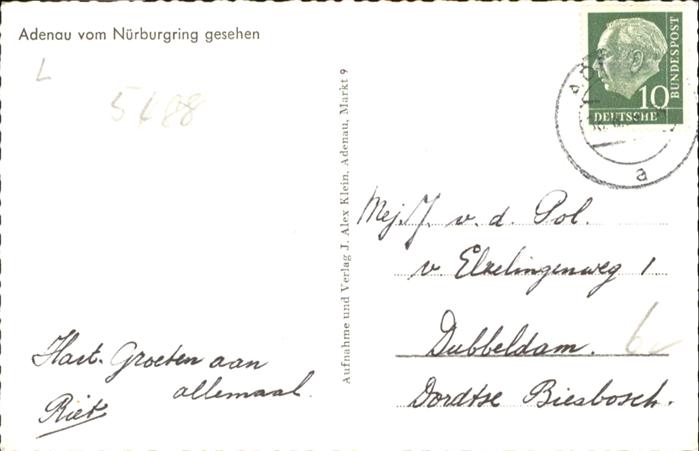 Adenau vom Nürburgring gesehen
L
5688
Aufnahme und Verlag J. Alex Klein, Adenau, Markt 9
DEUTSCHE
BUNDESPOST
10
a
Mej. J. v. d. Pol.
v Elzelingenweg 1
Dubbeldam.
Dordtse Biesbosch.
Hart. Groeten aan
allemaal.
Riet